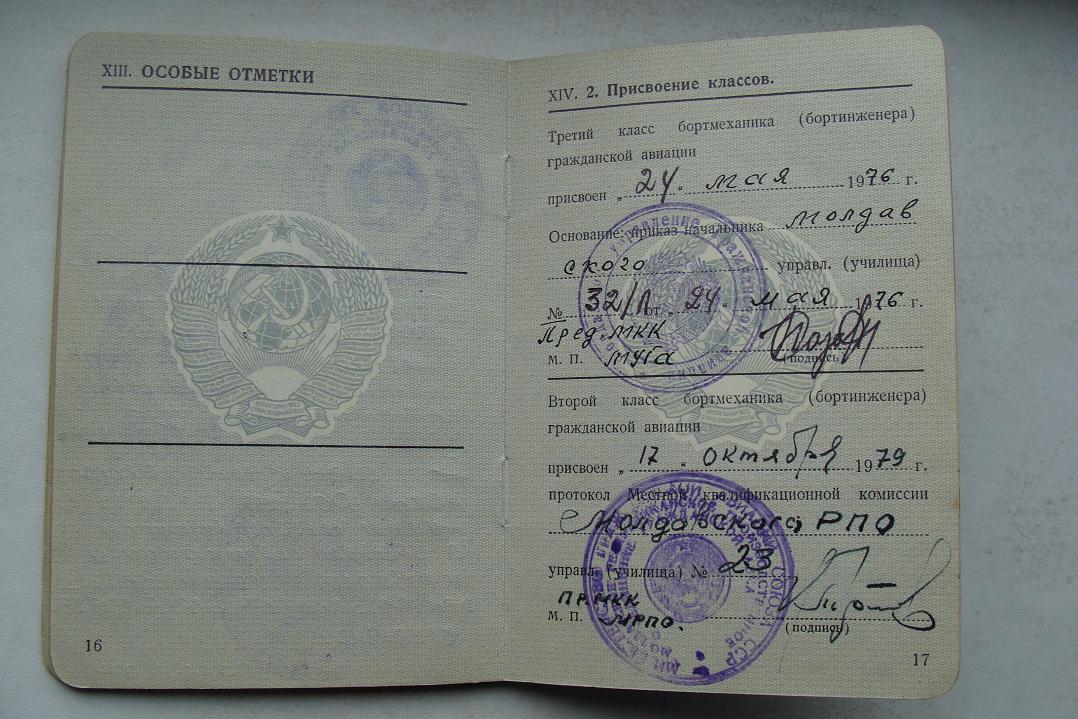 XIII. ОСОБЫЕ ОТМЕТКИ
16
XIV. 2. Присвоение классов.
Третий класс бортмеханика (бортинженера)
гражданской авиации
присвоен „ 24 " мая 1976 г.
Основание: приказ начальника Молдав
ского управл. (училища)
№ 32/Л от „ 24 " мая 1976 г.
Пред. МКК
М. П. МУГА (подпись)
Второй класс бортмеханика (бортинженера)
гражданской авиации
присвоен „ 17 " октября 1979 г.
протокол Местной квалификационной комиссии
Молдавского РПО
управл. (училища) № 23
ПР. МКК
М. П. МРПО. (подпись)
17